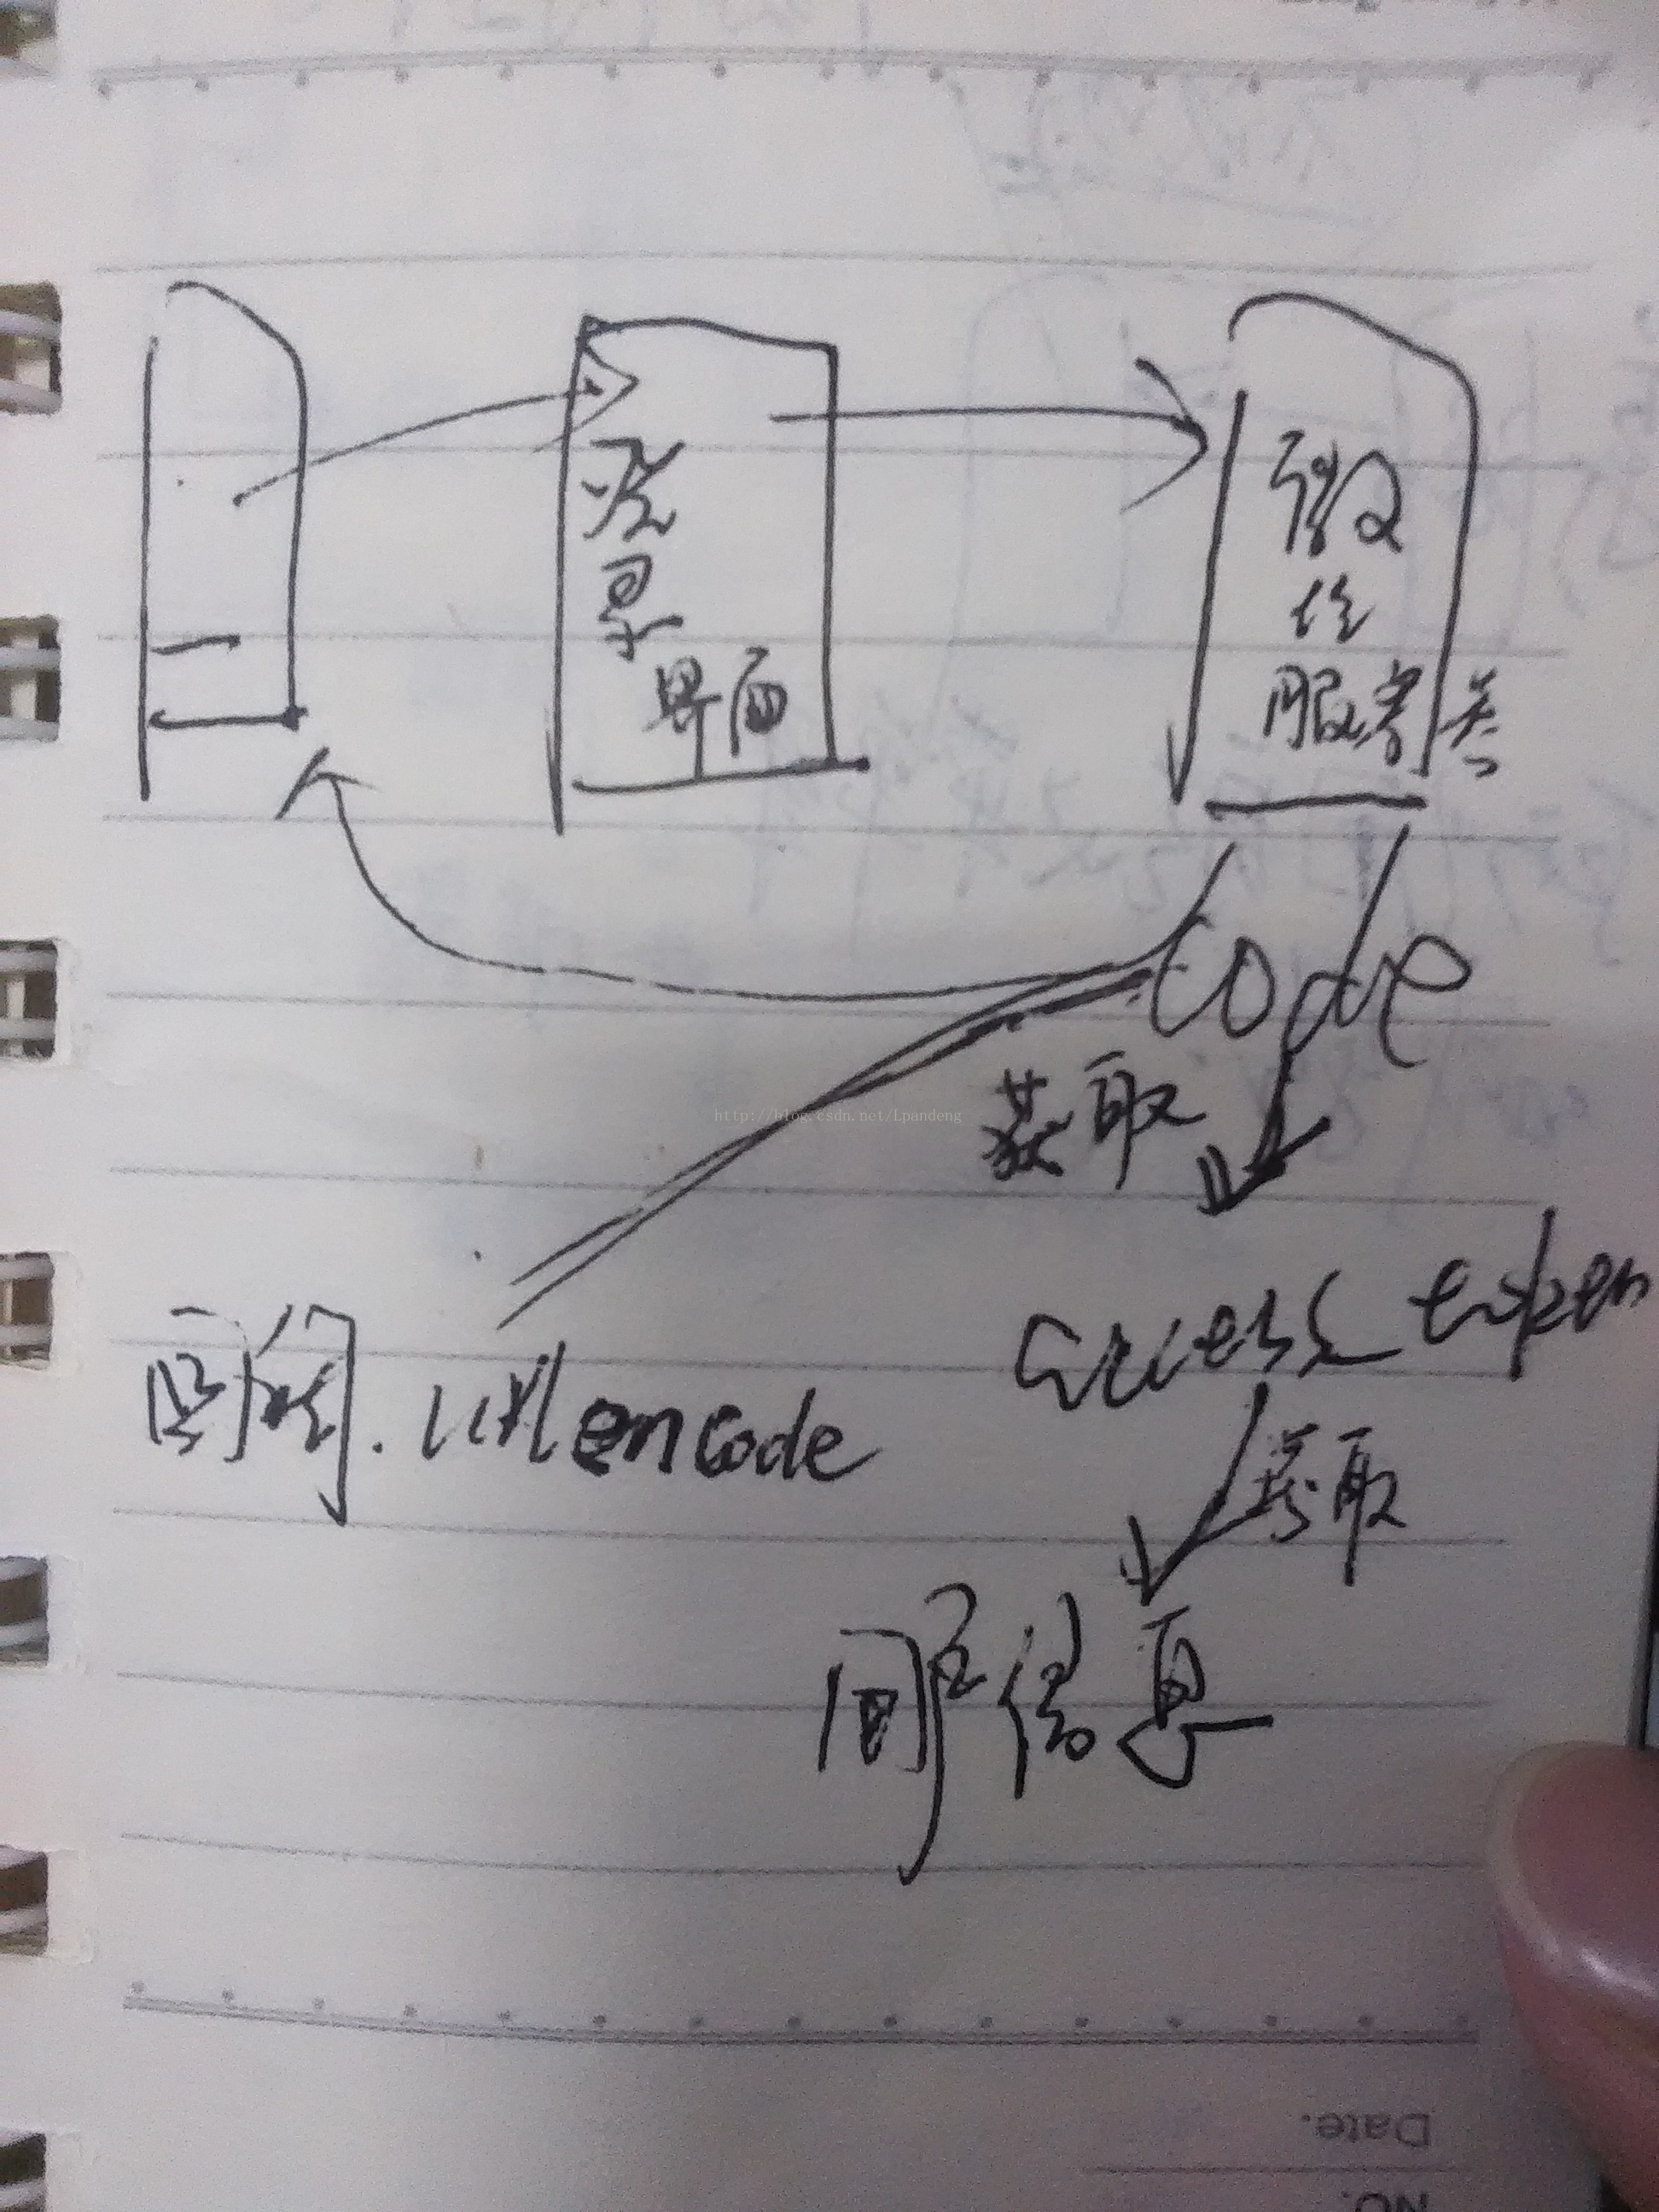 登录
界面
微信
服务器
code
获取
http://blog.csdn.net/Lpandeng
access_token
urlencode
获取
用户信息
Date.
NO.